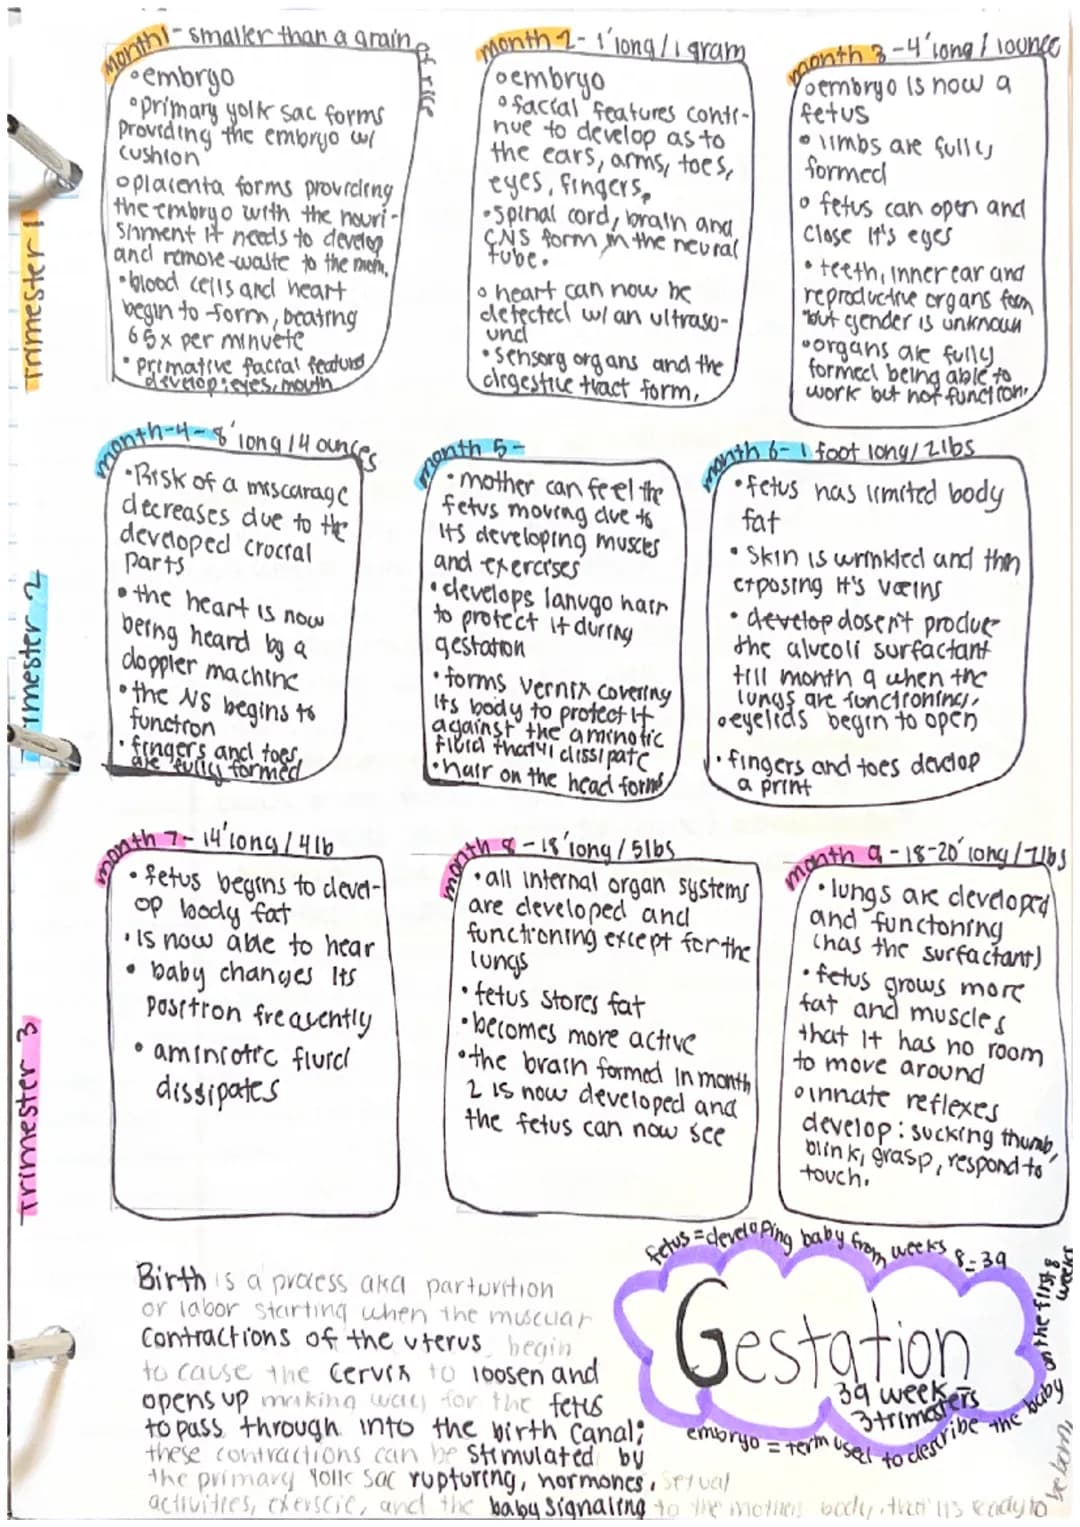 Trimester 1
month 1- smaller than a grain of rice
◦embryo
◦primary yolk sac forms
providing the embryo w/
cushion
◦placenta forms providing
the embryo with the nouri-
shment it needs to develop
and remove waste to the mom.
•blood cells and heart
begin to form, beating
65x per minuete
• primative facial feature
develop: eyes, mouth
month 2- 1' long / 1 gram
◦embryo
◦facial features conti-
nue to develop as to
the ears, arms, toes,
eyes, fingers,
•spinal cord, brain and
CNS form in the neural
tube.
◦ heart can now be
detected w/ an ultraso-
und
•sensorg organs and the
digestive tract form,
month 3 -4' long / 1ounce
◦embryo is now a
fetus
• limbs are fully
formed
◦ fetus can open and
close it's eyes
• teeth, inner ear and
reproductive organs form
"but gender is unknown
◦organs are fully
formed being able to
work but not function.
Trimester 2
month-4-8' long / 4 ounces
•Risk of a miscarage
decreases due to the
developed crocial
parts
•the heart is now
being heard by a
doppler machine
•the NS begins to
function
•fingers and toes
are fully formed
month 5-
•mother can feel the
fetus moving due to
its developing muscles
and exercises
•develops lanugo hair
to protect it during
gestation
•forms vernix covering
its body to protect it
against the aminotic
fluid that'll dissipate
•hair on the head forms
month 6- 1 foot long/ 2lbs
•fetus has limited body
fat
•skin is wrinkled and thin
exposing it's veins
• develop dosen't produe
the alveoli surfactant
till month 9 when the
lungs are functioning.
◦eyelids begin to open
•fingers and toes develop
a print
Trimester 3
month 7-14' long / 4lb
• fetus begins to devel-
op body fat
•is now able to hear
• baby changes its
position freqently
• aminiotic fluid
dissipates
month 8 -18' long / 5lbs
•all internal organ systems
are developed and
functioning except for the
lungs
•fetus stores fat
•becomes more active
•the brain formed in month
2 is now developed and
the fetus can now see
month 9 -18-20' long / 7lbs
•lungs are developed
and functoning
(has the surfactant)
•fetus grows more
fat and muscles
that it has no room
to move around
◦innate reflexes
develop: sucking thumb,
blink, grasp, respond to
touch.
Birth is a process aka parturition
or labor starting when the muscular
contractions of the uterus begin
to cause the cervix to loosen and
opens up making way for the fetus
to pass through into the birth canal;
these contractions can be stimulated by
the primary yolk sac rupturing, hormones, sexual
activities, exerscie, and the baby signaling to the mothers body, that its ready to
be born.
fetus = developing baby from weeks 8-39
Gestation
39 weeks
3 trimesters
embryo = term used to describe the baby on the first 8 weeks